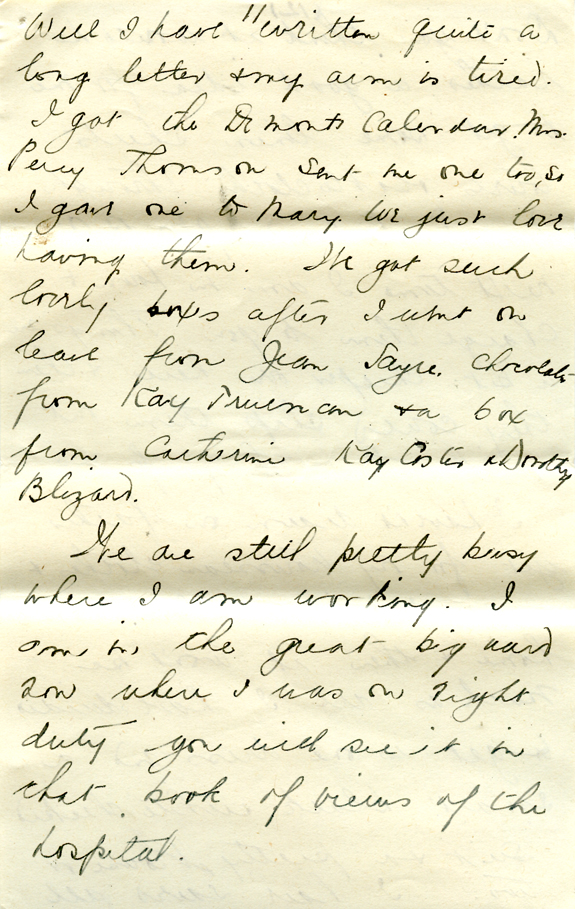 11
Well I have written quite a
long letter & my arm is tired.
I got the Dr monts Calendar. Mrs.
Percy Thomson sent me one too, so
I gave one to Mary. We just love
having them. We got such
lovely boxes after I went on
leave from Jean Sayre, chocolates
from Kay Trueman & a box
from Catherine Kay Coster & Dorothy
Blizard.
We are still pretty busy
where I am working. I
am in the great big ward
now where I was on night
duty you will see it in
that book of views of the
hospital.